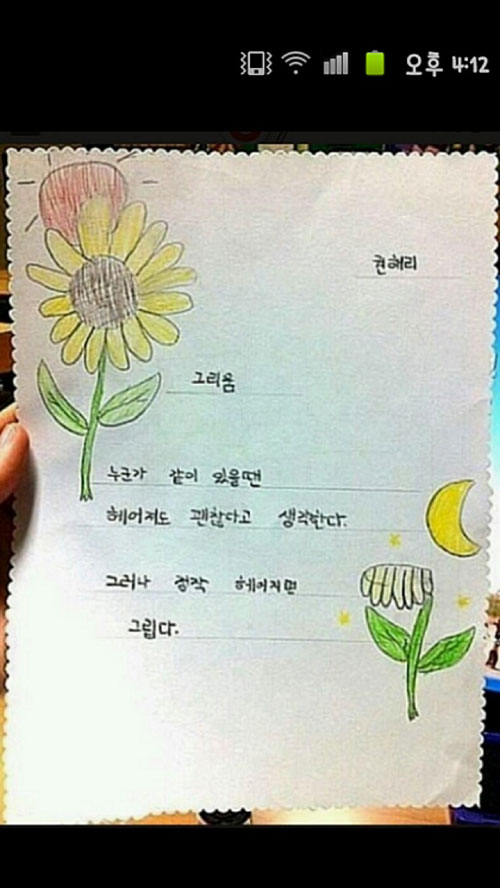 오후 4:12
권혜리
그리움
누군가 같이 있을땐
헤어져도 괜찮다고 생각한다.
그러나 정작 헤어지면
그립다.